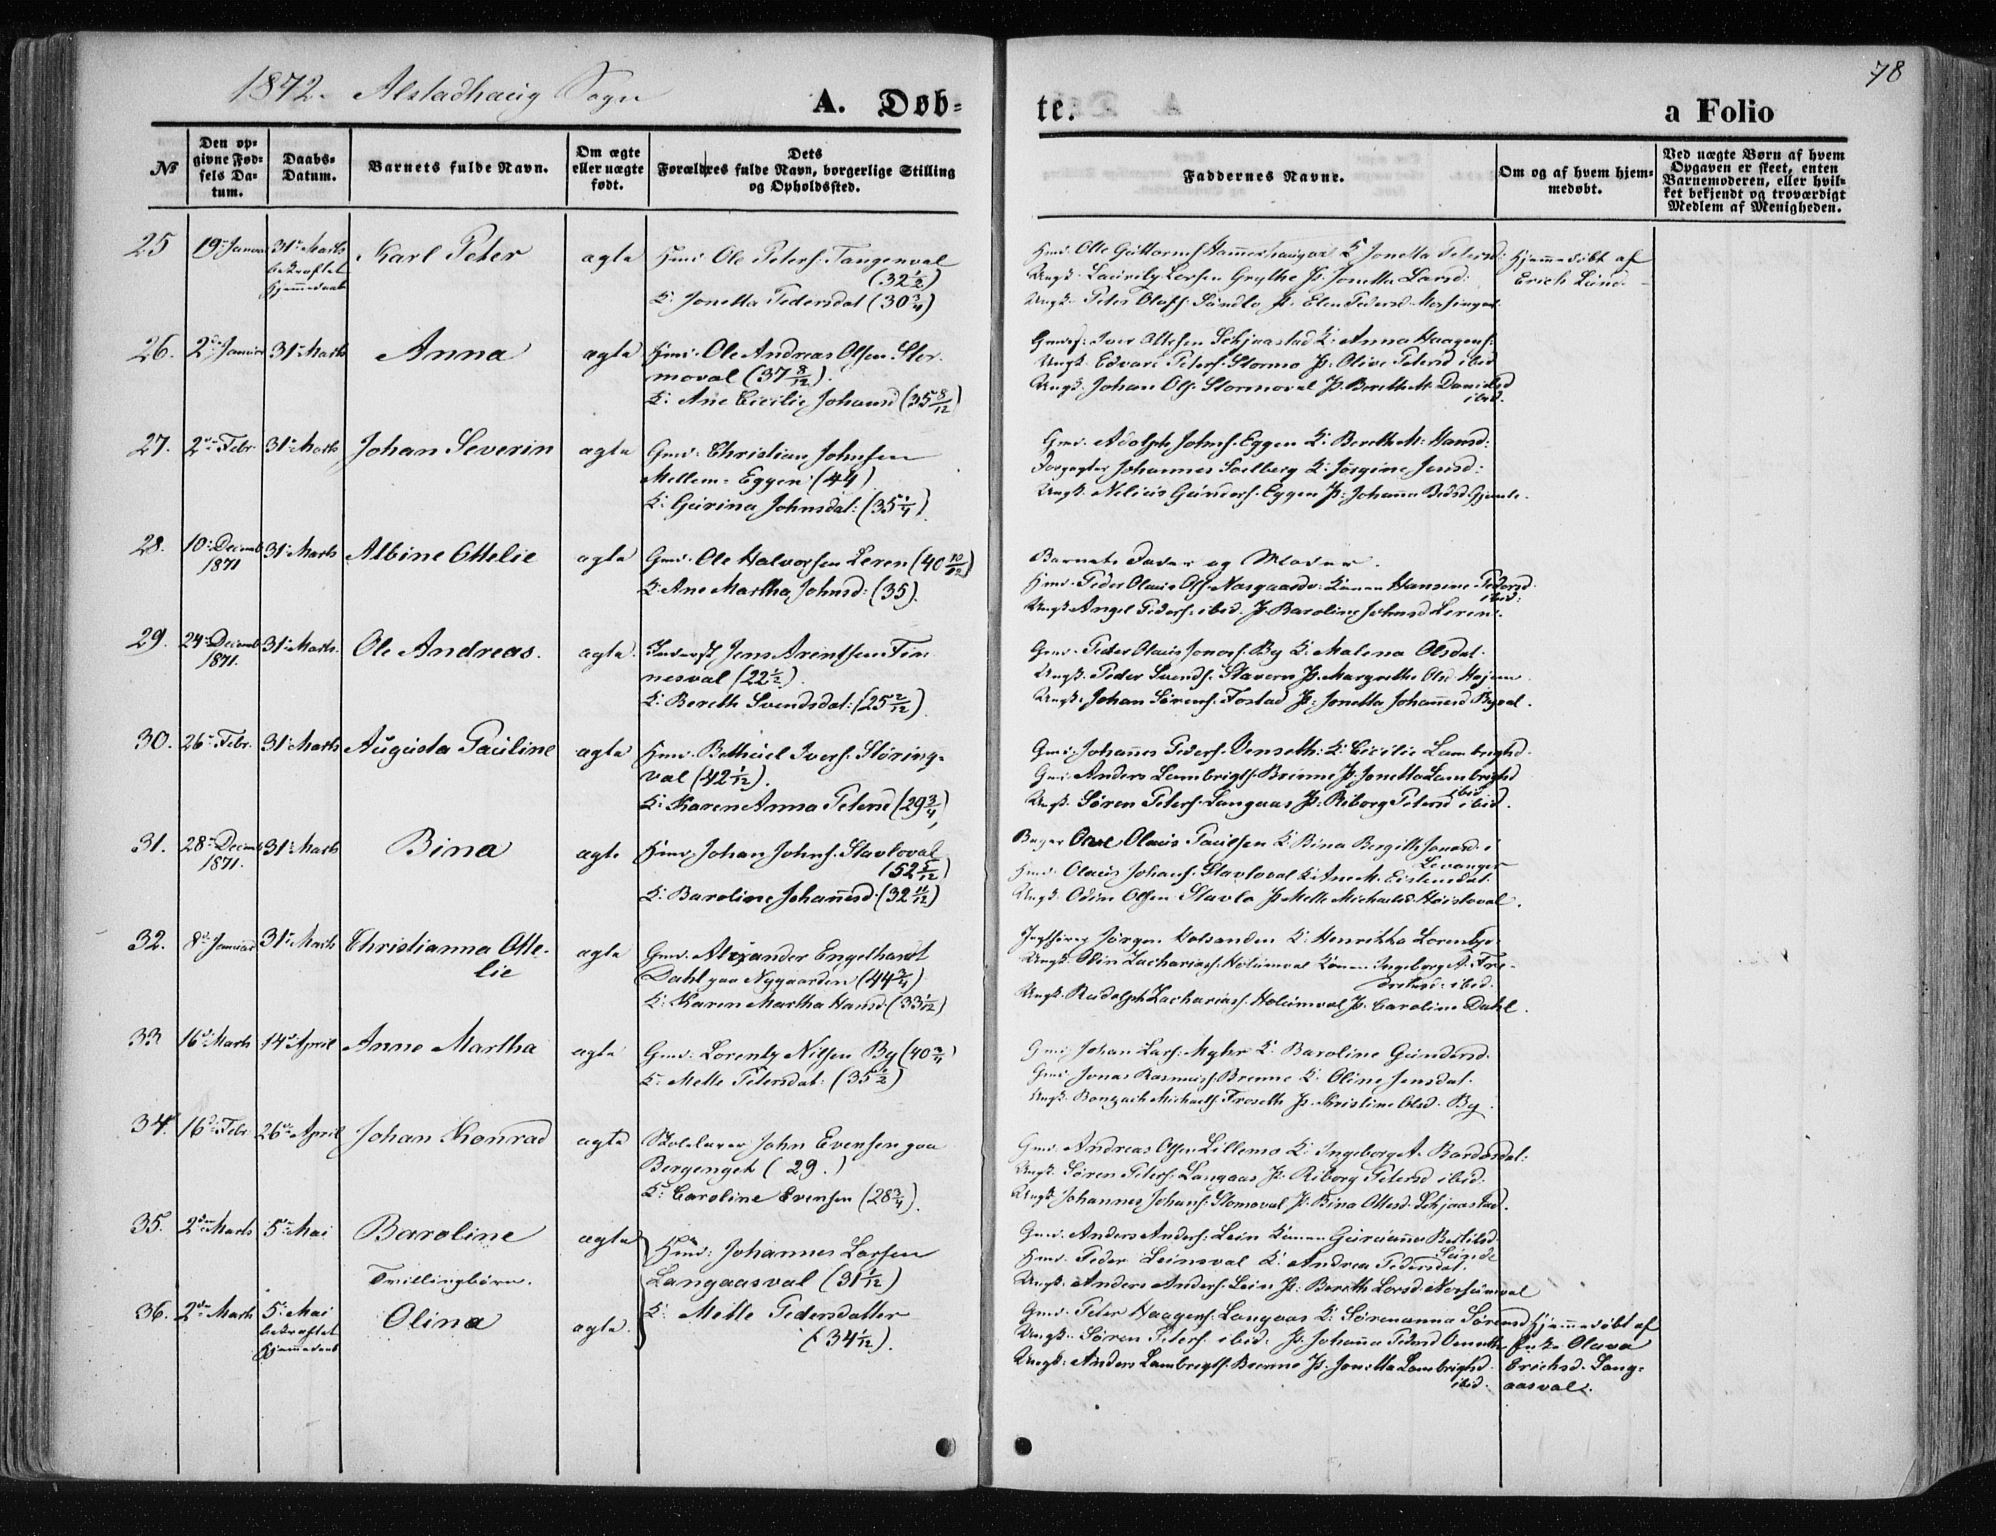 1872. Alstadhaug Sogn
A. Døb-
te.
a Folio
78
№
Den op-
givne Fød-
sels Da-
tum.
Daabs-
Datum.
Barnets fulde Navn.
Om ægte
eller uægte
født.
Dets
Forældres fulde Navn, borgerlige Stilling
og Opholdssted.
Faddernes Navne.
Om og af hvem hjem-
medøbt.
Ved uægte Børn af hvem
Opgaven er skeet, enten
Barnemoderen, eller hvil-
ket bekjendt og troværdigt
Medlem af Menigheden.
25 19de Januar 31te Marts Karl Peter ægte Hmd. Ole Peters. Tangenval
bekræftet
Hjemmedaab
(32 1/2)
K. Jonetta Pedersdat (30 3/4)
Jonetta Peters
Jonetta Larsd.
Peter Olafs. Sundlo P. Elen Pedersd.
Hjemmedøbt af
Erich Lund.
26. 2den Januar 31te Marts Anna ægte Hmd. Ole Andreas Olsen Stor-
moval (37 8/12).
K. Ane Cicilie Johansd (35 8/12)
Iver Ottesen Schjaastad K. Anna Haagens.
Ungk. Edvard Peters. Stormo P. Olive Petersd ibid
Ungk. Johan Ols. Stormoval P. Bereth M. Danielsd
ibid.
27. 2den Febr. 31te Marts Johan Severin ægte Gmd. Christian Johnsen
Mellem-Eggen (44)
K. Gurina Johnsdat: (35 1/4).
Gmd. Adolph Johns. Eggen K. Bereth M. Hansd:
Forpagter Johannes Salberg K. Jørgine Jensd:
Ungk. Nelius Gunders. Eggen P. Johanna
28. 10de Decemb 31te Marts Albine Ottelie ægte Gmd. Ole Halvorsen Leren (40 10/12)
1871
K. Ane Martha Johnsd: (35).
Barnets Fader og Moder.
Hmd. Peder Olaus Ols. Nasgaardv. Konen Hansine Pedersd.
ibid:
Ungk. Angel Peders. ibid. P. Baroline Johnsd Leren.
29. 24de Decemb 31te Marts. Ole Andreas. ægte. Inderst Jens Arentsen Fin-
1871.
nesval (22 1/2).
K. Bereth Svendsdat: (25 2/12).
Gmd. Peter Olaus Jonas. By K. Malena Olsdat.
Ungk. Peder Svends. Stavern P. Margrethe Olsd. Hojem
Ungk. Johan Sørens. Fostad P. Jonetta Johannesd Byval.
30. 26de Febr. 31te Marts Augusta Pauline ægte Hmd. Bethuel Ivers. Støring-
val (42 1/12).
K. Karen Anna Petersd (29 3/4)
Gmd. Johannes Peders. Venseth. K. Cicilie Lambrigtsd.
Gmd. Anders Lambrigts. Brenne P. Jonetta Lambrigtsd
ibid.
Ungk. Søren Peters. Langaas P. Riborg Petersd ibid.
31. 28de Decemb 31te Marts Bina ægte Hmd. Johan Johns. Stavloval
1871.
(52 5/12)
K. Baroline Johannesd. (32 11/12)
Bager Olaus Paulsen K. Bina Bergitte i
Levanger
Hmd. Olaus Johans. Stavloval K. Ane M. Eistensdat.
Ungk. Odin Olsen Stavlo P. Mette Michaelsd Høisloval.
32. 8de Januar 31te Marts Christianna Otte-
lie
ægte Gmd. Alexander Engelhardt
Dahl paa Nygaarden (44 3/4)
K. Karen Martha Hansd. (33 1/12)
Jørgen Holsanden K. Henrikka Lorentze.
Ungk. Odin Zacharias. Holumval Konen Ingeborg A. Fre-
driksd. ibid.
Ungk. Rudolph Zacharias. Holumval P. Caroline Dahl.
33 16de Marts 14de April Anne Martha ægte Gmd. Lorentz Nilsen By (40 3/4)
K. Mette Petersdat: (35 1/2)
Gmd. Johan Lars. Myhr K. Baroline Gundersd.
Gmd. Jonas Rasmus. Brenne K. Oline Jensdat.
Ungk. Michaels. Froseth P. Kristine Olsd. By.
34. 16de Febr 26de April Johan Konrad ægte Skolelærer John Evensen paa
Bergenget (29.)
K. Caroline Evensen (28 3/4).
Gmd. Andreas Olsen Lillemo K. Ingeborg A. Bardosdat:
Ungk. Søren Peters. Langaas P. Riborg Petersd ibid.
Ungk. Johannes Johans. Stormoval P. Bina Ottesd. Schjaastad.
35. 2den Marts 5te Mai Baroline ægte
Tvillingbørn.
Hmd: Johannes Larsen
Langaasval (31 1/12)
Gmd. Anders Anders. Lein Konen Gurianna
Hmd. Peder Leinsval K. Andrea Pedersdat.
Ungk. Anders Anders. Lein P. Bereth Larsd.
36. 2den Marts 5te Mai Olina ægte. K. Mette Pedersdatter
bekræftet
Hjemmedaab
(34 1/12).
Gmd. Peter Haagens. Langaas K. Sørenanna Sørensd
Ungk. Søren Peters. ibid. P. Johanna Petersd Venseth
Ungk. Anders Lambrigts. Brenne P. Jonetta Lambrigtsd.
ibid.
Hjemmedøbt af
Enke Olava
Erichsd. Lang-
aasval.